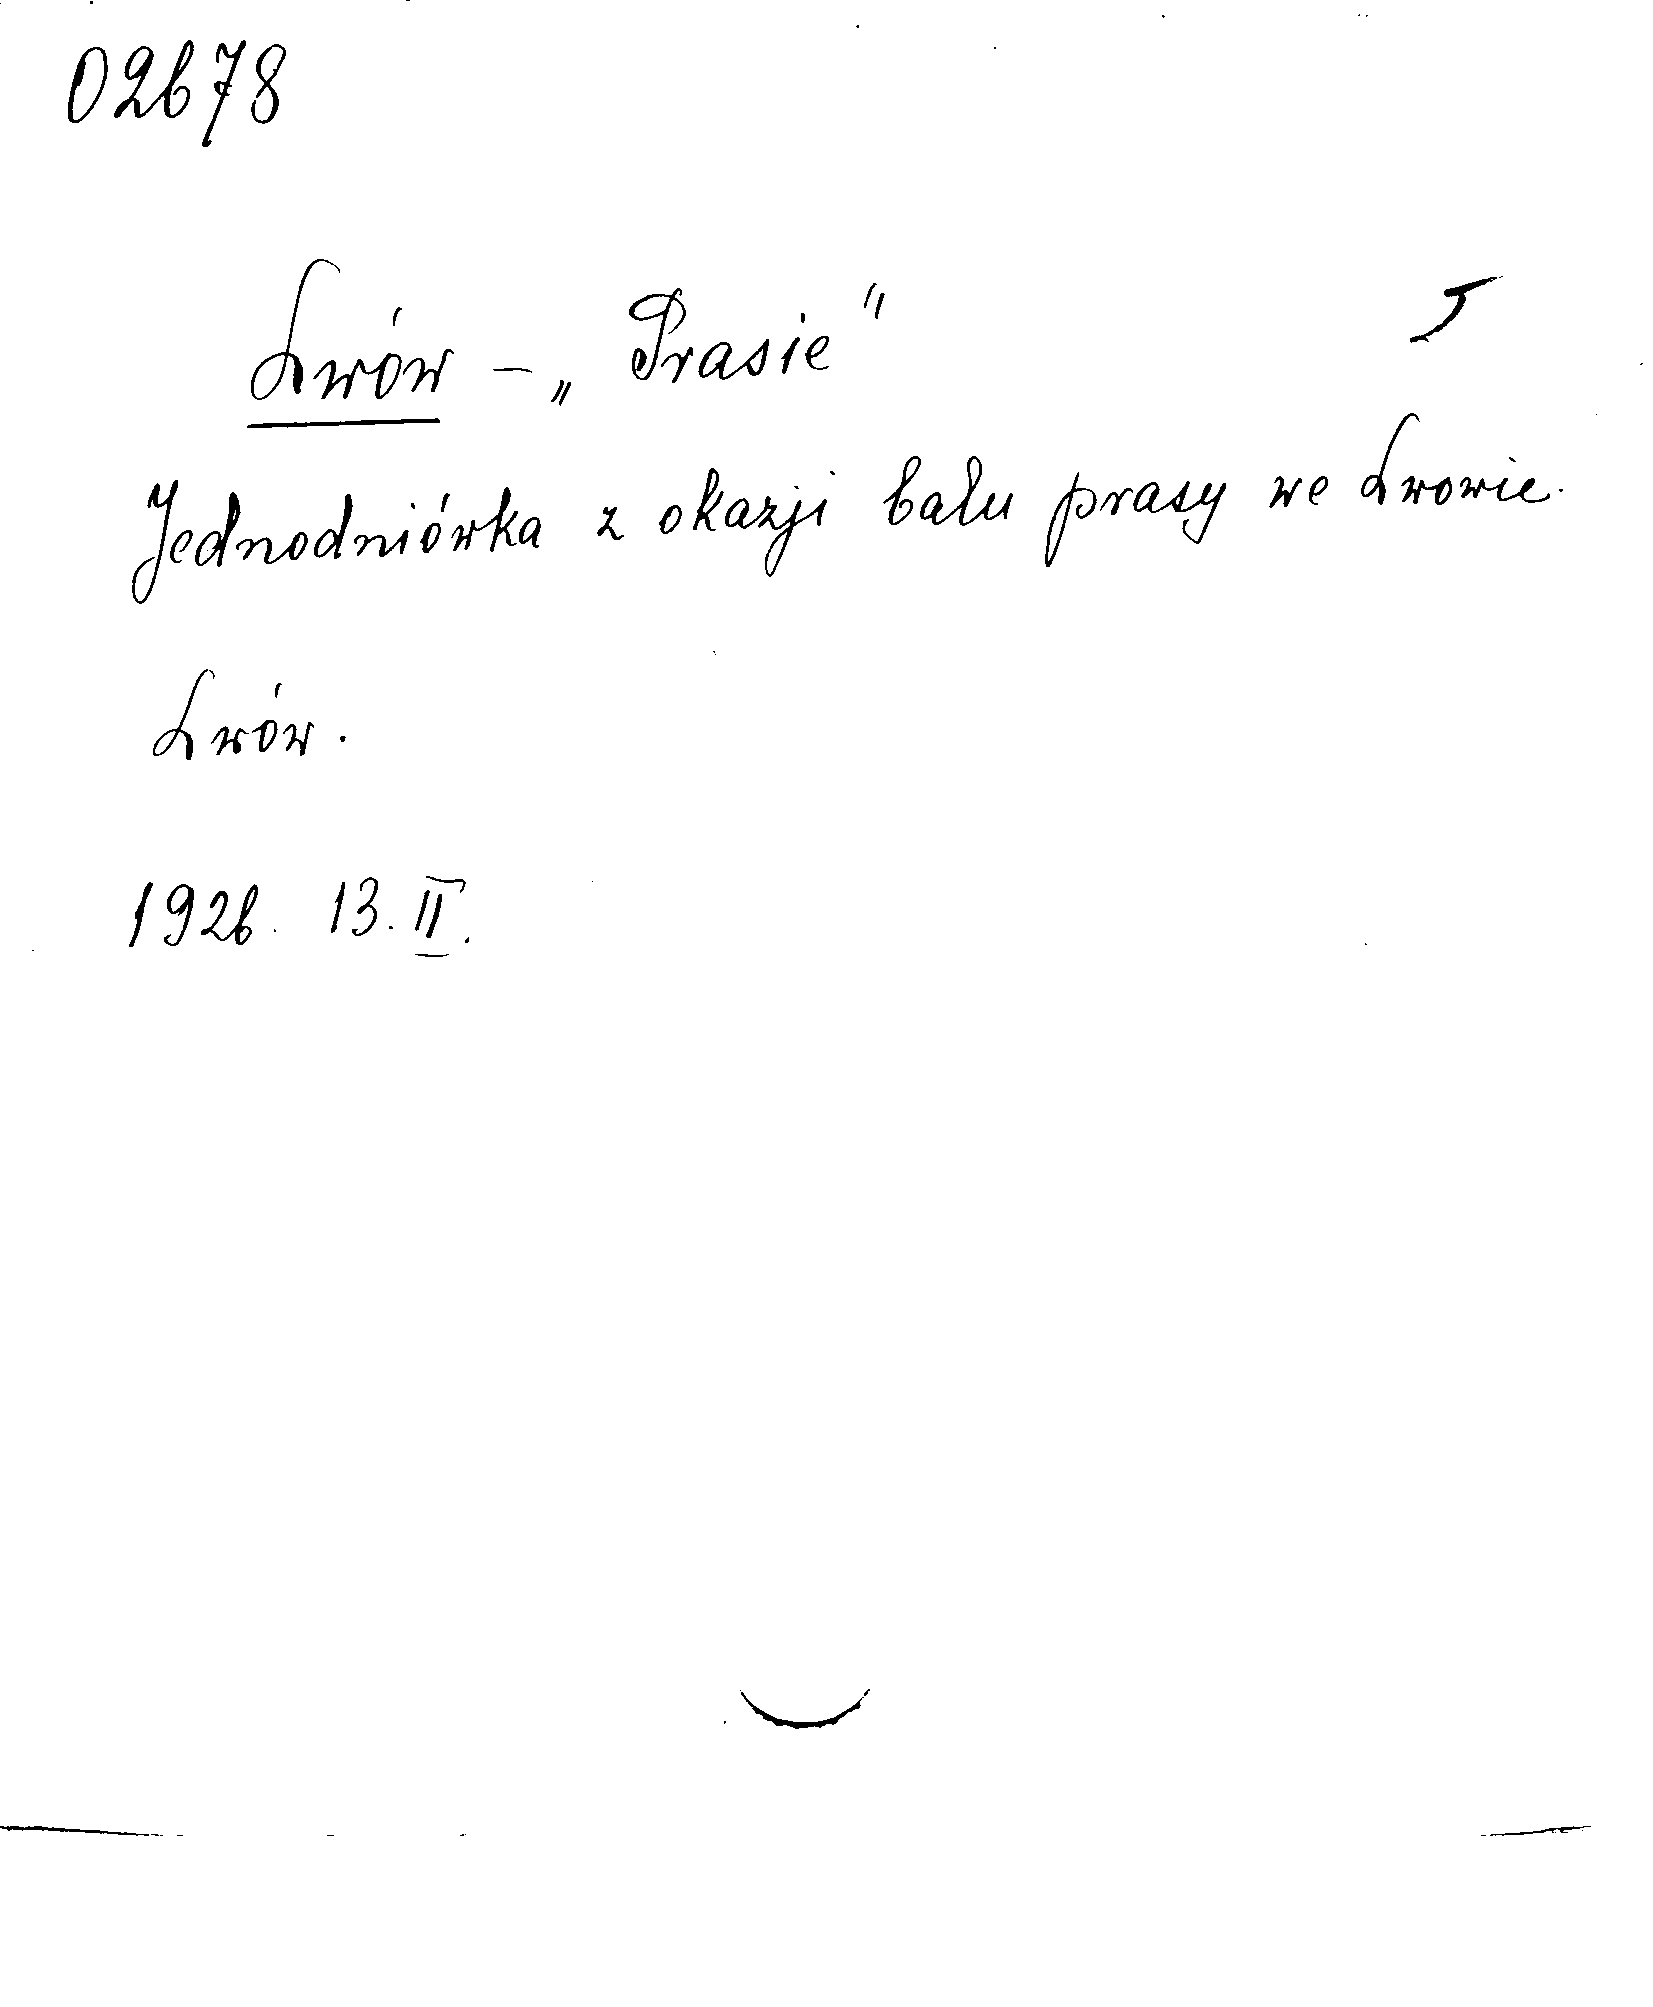 02678
Lwów - „Prasie"
Jednodniówka z okazji balu prasy we Lwowie.
Lwów.
1926. 13. II.